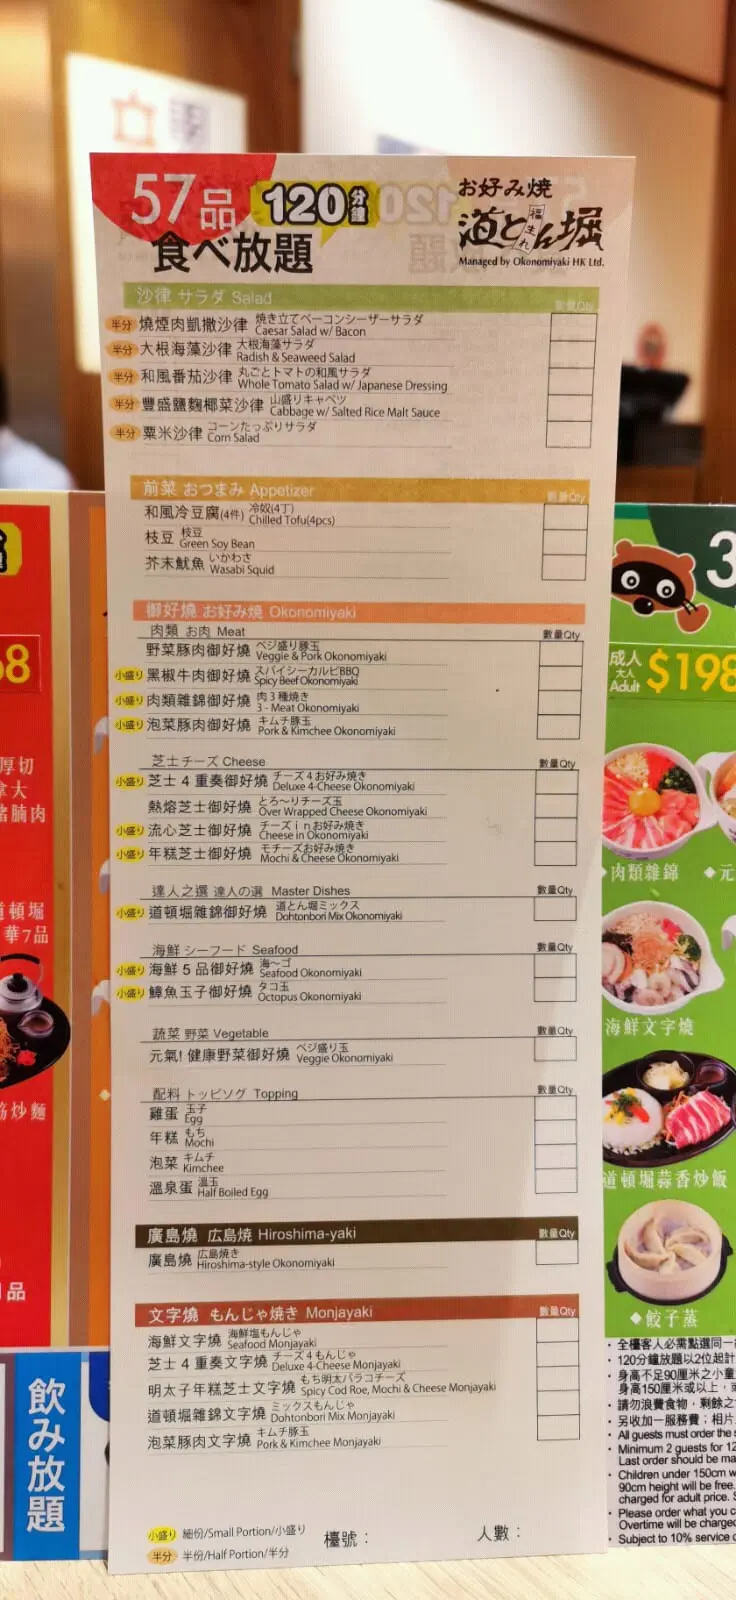 57品 120分鐘
食べ放題
お好み焼
道とん堀
福生れ
Managed by Okonomiyaki HK Ltd.
沙律 サラダ Salad 數量Qty
半分 燒煙肉凱撒沙律 焼き立てベーコンシーザーサラダ
Caesar Salad w/ Bacon
半分 大根海藻沙律 大根海藻サラダ
Radish & Seaweed Salad
半分 和風番茄沙律 丸ごとトマトの和風サラダ
Whole Tomato Salad w/ Japanese Dressing
半分 豐盛鹽麴椰菜沙律 山盛りキャベツ
Cabbage w/ Salted Rice Malt Sauce
半分 粟米沙律 コーンたっぷりサラダ
Corn Salad
前菜 おつまみ Appetizer 數量Qty
和風冷豆腐(4件) 冷奴(4丁)
Chilled Tofu(4pcs)
枝豆 枝豆
Green Soy Bean
芥末魷魚 いかわさ
Wasabi Squid
御好燒 お好み焼 Okonomiyaki
肉類 お肉 Meat 數量Qty
野菜豚肉御好燒 ベジ盛り豚玉
Veggie & Pork Okonomiyaki
小盛り 黑椒牛肉御好燒 スパイシーカルビBBQ
Spicy Beef Okonomiyaki
小盛り 肉類雜錦御好燒 肉3種焼き
3 - Meat Okonomiyaki
小盛り 泡菜豚肉御好燒 キムチ豚玉
Pork & Kimchee Okonomiyaki
芝士 チーズ Cheese 數量Qty
小盛り 芝士4重奏御好燒 チーズ4お好み焼き
Deluxe 4-Cheese Okonomiyaki
熱熔芝士御好燒 とろ～りチーズ玉
Over Wrapped Cheese Okonomiyaki
小盛り 流心芝士御好燒 チーズinお好み焼き
Cheese in Okonomiyaki
小盛り 年糕芝士御好燒 モチーズお好み焼き
Mochi & Cheese Okonomiyaki
達人之選 達人の選 Master Dishes 數量Qty
小盛り 道頓堀雜錦御好燒 道とん堀ミックス
Dohtonbori Mix Okonomiyaki
海鮮 シーフード Seafood 數量Qty
小盛り 海鮮5品御好燒 海～ゴ
Seafood Okonomiyaki
小盛り 鱆魚玉子御好燒 タコ玉
Octopus Okonomiyaki
蔬菜 野菜 Vegetable 數量Qty
元氣! 健康野菜御好燒 ベジ盛り玉
Veggie Okonomiyaki
配料 トッピソグ Topping 數量Qty
雞蛋 玉子
Egg
年糕 もち
Mochi
泡菜 キムチ
Kimchee
溫泉蛋 溫玉
Half Boiled Egg
廣島燒 広島焼 Hiroshima-yaki 數量Qty
廣島燒 広島焼き
Hiroshima-style Okonomiyaki
文字燒 もんじゃ焼き Monjayaki 數量Qty
海鮮文字燒 海鮮塩もんじゃ
Seafood Monjayaki
芝士4重奏文字燒 チーズ4もんじゃ
Deluxe 4-Cheese Monjayaki
明太子年糕芝士文字燒 もち明太バラコチーズ
Spicy Cod Roe, Mochi & Cheese Monjayaki
道頓堀雜錦文字燒 ミックスもんじゃ
Dohtonbori Mix Monjayaki
泡菜豚肉文字燒 キムチ豚玉
Pork & Kimchee Monjayaki
小盛り 細份/Small Portion/小盛り
半分 半份/Half Portion/半分
檯號： 人數：
厚切
拿大
豬腩肉
道頓堀
華7品
炒麵
品
飲み放題
成人
大人
Adult $198
肉類雜錦
海鮮文字燒
道頓堀蒜香炒飯
餃子蒸
・全檯客人必需點選同一
・120分鐘放題以2位起計
・身高不足90厘米之小童
身高150厘米或以上，
・請勿浪費食物，剩餘之
・另收加一服務費；相片
・All guests must order the
・Minimum 2 guests for 12
Last order should be ma
・Children under 150cm w
90cm height will be free.
charged for adult price. S
・Please order what you c
Overtime will be charged
・Subject to 10% service c